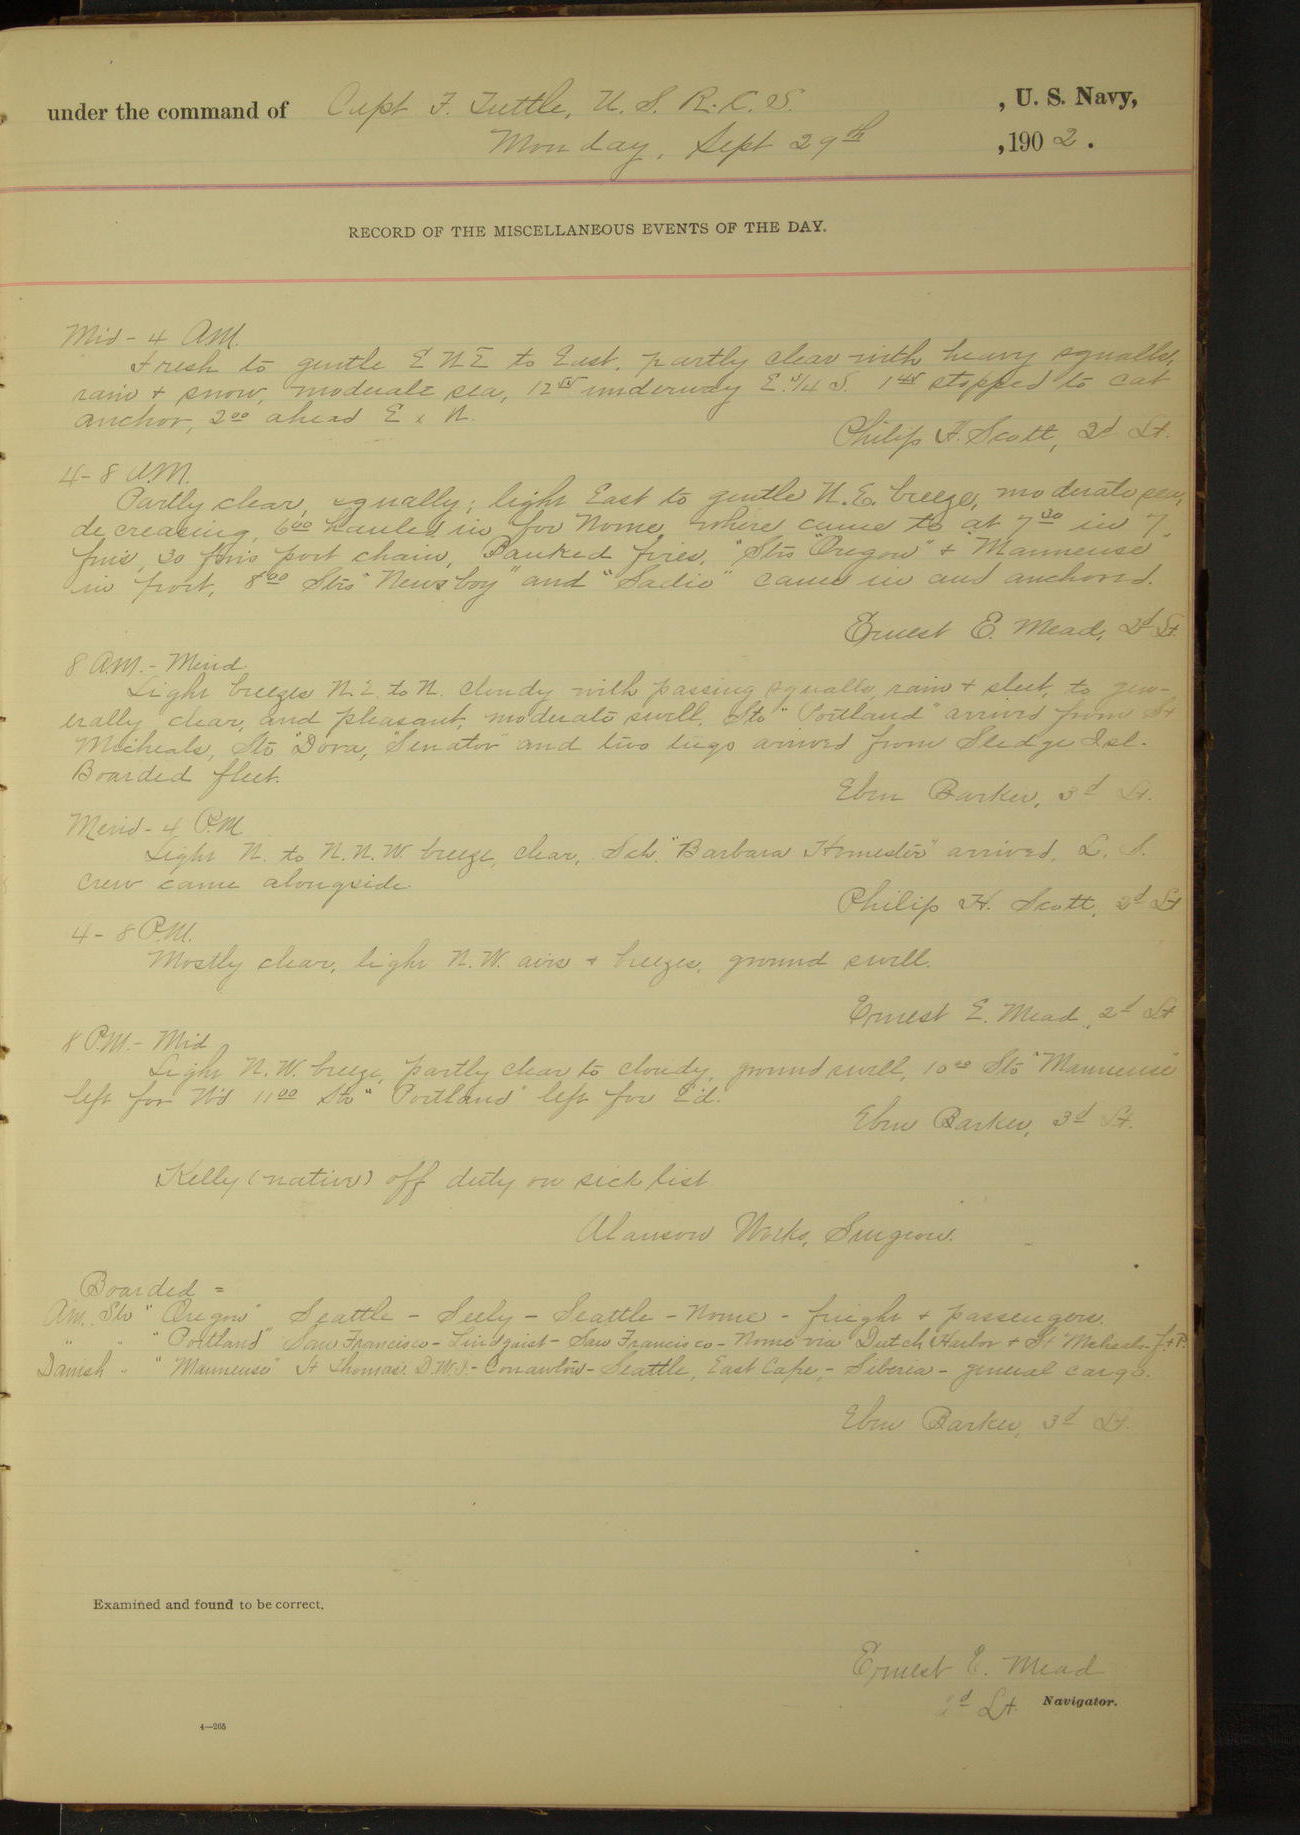 under the command of Capt F. Tuttle, U. S. R. C. S. , U. S. Navy,
Monday, Sept 29th , 1902.
RECORD OF THE MISCELLANEOUS EVENTS OF THE DAY.
Mid - 4 AM.
Fresh to gentle E N E to East, partly clear with heavy squalls,
rain + snow, moderate sea, underway E. 3/4 S. stopped to cat
anchor, 2 00 ahead E x N.
Philip H. Scott, 2d Lt.
4 - 8 A.M.
Partly clear, squally; light East to gentle N.E. breeze, moderate sea,
decreasing, 6 00 hauled in for Nome, where came to at 7 30 in 7
fms, 30 fms port chain, Banked fires, Strs "Oregon" + "Manneuse"
in port, 8 00 Strs "Newsboy" and "Sadie" came in and anchored.
Ernest E. Mead, 2d Lt.
8 A.M. - Merid.
Light breezes N.E. to N. cloudy with passing squalls, rain + sleet, to gen-
erally clear, and pleasant, moderate swell. Str "Portland" arrived from St
Micheals, Strs "Dora, "Senator" and two tugs arrived from Sledge Isl.
Boarded fleet.
Eben Barker, 3d Lt.
Merid - 4 P.M
Light N. to N. N. W. breeze, clear, Sch. "Barbara Hernster" arrived, L. S.
crew came alongside.
Philip H. Scott, 2d Lt
4 - 8 P.M.
Mostly clear, light N. W. airs + breezes, ground swell.
Ernest E. Mead, 2d Lt
8 P.M. - Mid
Light N. W. breeze, partly clear to cloudy, ground swell, 10 00 Str "Manneuse"
left for N'd 11 00 Str "Portland" left for E'd.
Eben Barker, 3d Lt.
Kelly (native) off duty on sick list
Alanson Works, Surgeon.
Boarded =
Am. Str "Oregon" Seattle - Seely - Seattle - Nome - freight + passengers.
" " "Portland" San Francisco - Lindquist - San Francisco - Nome via Dutch Harbor + St Micheals - f. + P.
Danish " "Manneuse" St Thomas. D.W.I. - Seattle, East Cape, - Siberia - general cargo.
Eben Barker, 3d Lt.
Examined and found to be correct.
Ernest E. Mead
2d Lt. Navigator.
4—265